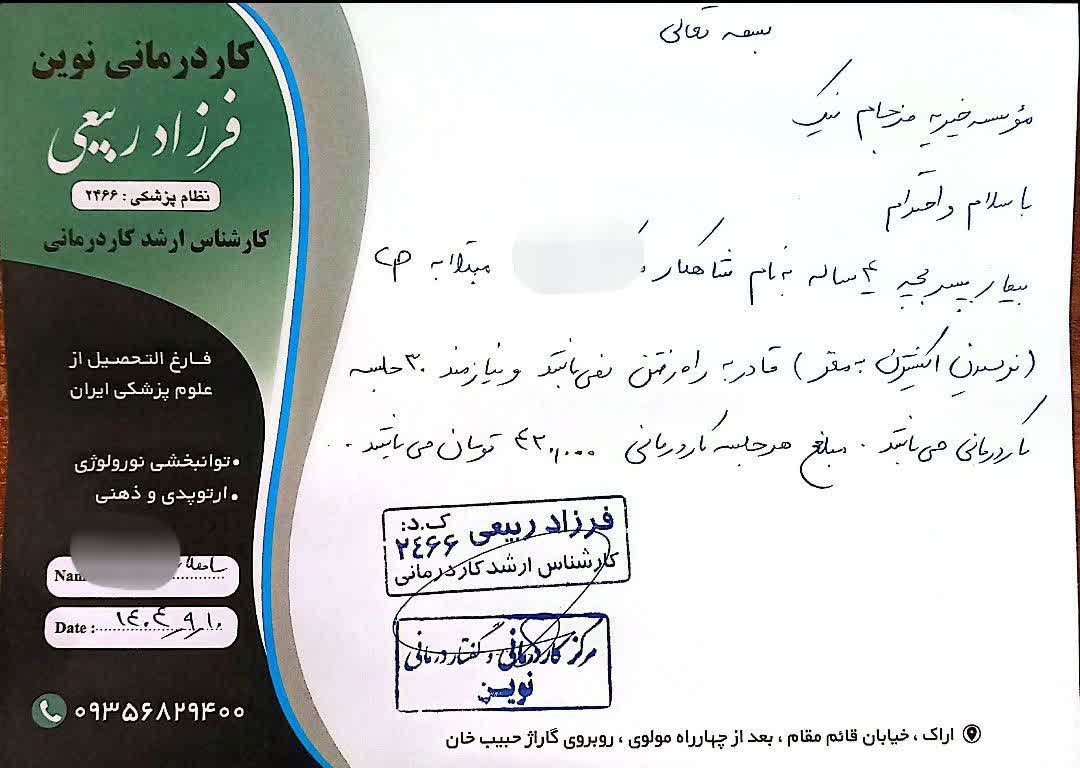 کاردرمانی نوین
فرزاد ربیعی
نظام پزشکی : ۲۴۶۶
کارشناس ارشد کاردرمانی
فارغ التحصیل از
علوم پزشکی ایران
• توانبخشی نورولوژی
• ارتوپدی و ذهنی
Name
Date : ۱۴۰۴/۹/۱۰
۰۹۳۵۶۸۲۹۴۰۰
بسمه تعالی
مؤسسه خیریه فرجام نیک
با سلام و احترام
بیمار پسر بچه ۴ ساله به نام شاهکار مبتلا به CP
(نرسیدن اکسیژن به مغز) قادر به راه رفتن نمی‌باشد و نیازمند ۳۰ جلسه
کاردرمانی می‌باشد . مبلغ هر جلسه کاردرمانی ۴۲۰,۰۰۰ تومان می‌باشد .
فرزاد ربیعی ک.د: ۲۴۶۶
کارشناس ارشد کاردرمانی
مرکز کاردرمانی و گفتاردرمانی
نوین
اراک ، خیابان قائم مقام ، بعد از چهارراه مولوی ، روبروی گاراژ حبیب خان